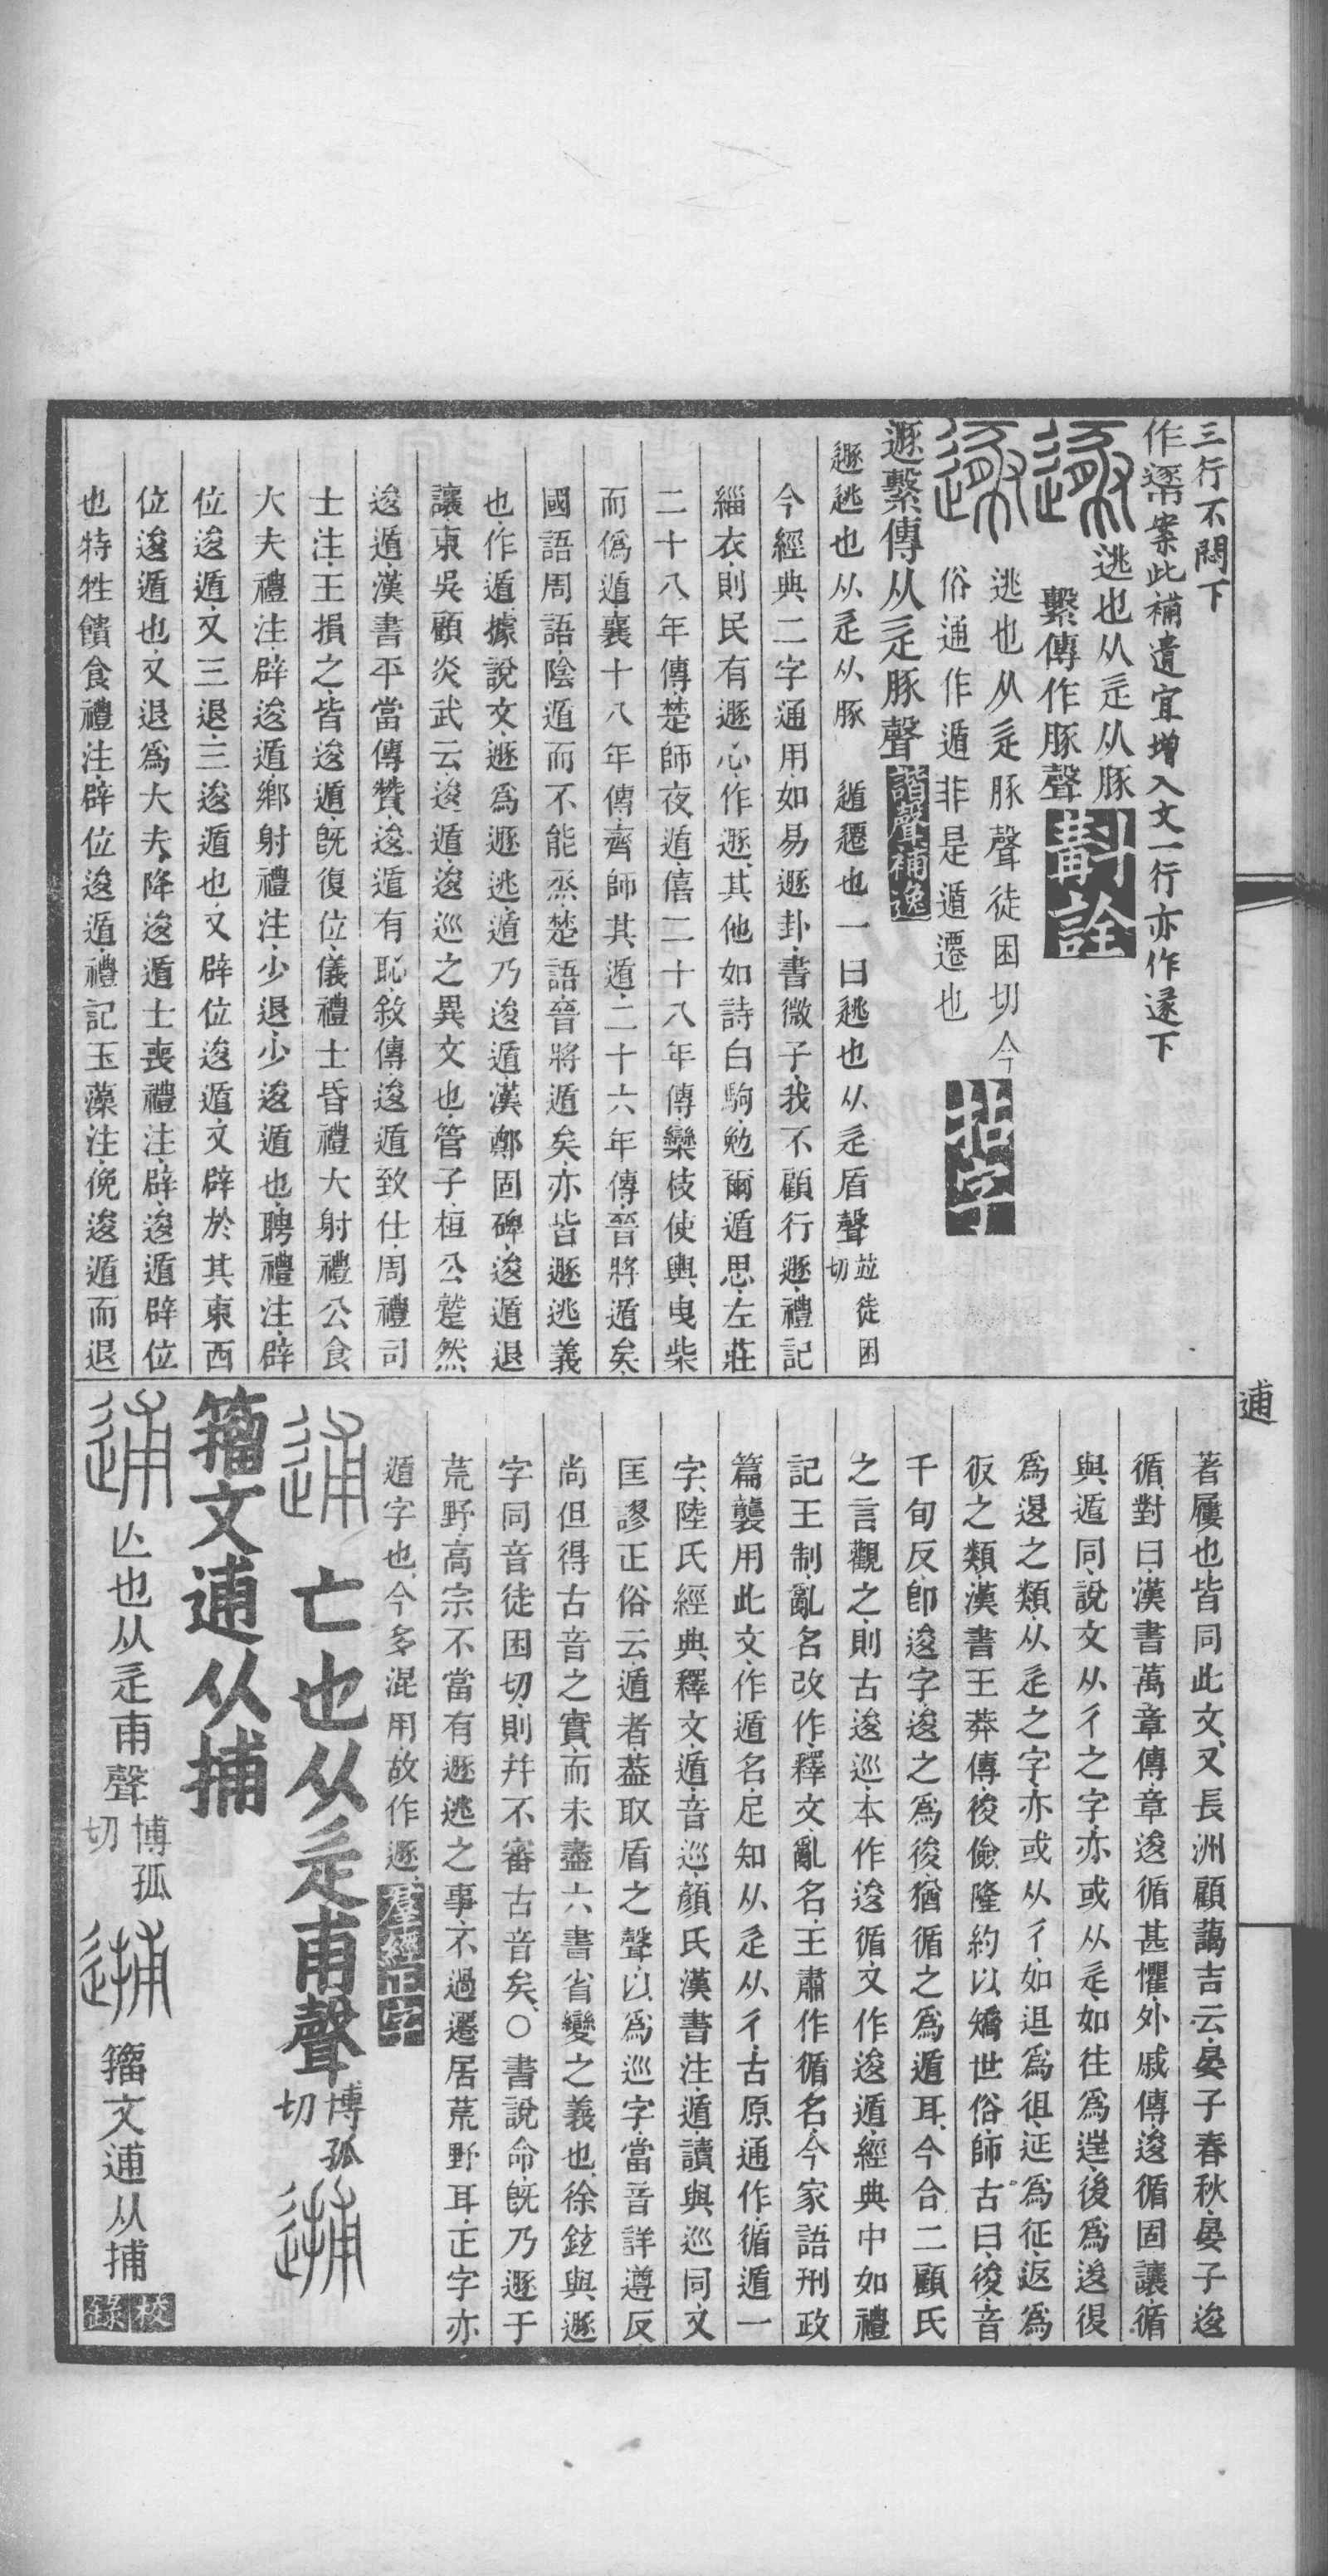 三行不闊下
作遰案此補遺宜增入文一行亦作逯下
逃也从辵从豚
繫傳作豚聲
斠詮
逃也从辵豚聲徒困切今
俗通作遁非是遁遷也
拈字
遯繫傳从辵豚聲
諧聲補逸
遯逃也从辵从豚 遁遷也一曰逃也从辵盾聲
竝徒困
切
今經典二字通用如易遯卦書微子我不顧行遯禮記
緇衣則民有遯心作遯其他如詩白駒勉爾遁思左莊
二十八年傳楚師夜遁僖二十八年傳欒枝使輿曳柴
而僞遁襄十八年傳齊師其遁二十六年傳晉將遁矣
國語周語陰遁而不能烝楚語晉將遁矣亦皆遯逃義
也作遁據說文遯爲遯逃遁乃逡遁漢鄭固碑逡遁退
讓東吳顧炎武云逡遁逡巡之異文也管子桓公蹵然
逡遁漢書平當傳贊逡遁有恥敘傳逡遁致仕周禮司
士注王揖之皆逡遁既復位儀禮士昏禮大射禮公食
大夫禮注辟逡遁鄉射禮注少退少逡遁也聘禮注辟
位逡遁又三退三逡遁也又辟位逡遁文辟於其東西
位逡遁也又退爲大夫降逡遁士喪禮注辟逡遁辟位
也特牲饋食禮注辟位逡遁禮記玉藻注俛逡遁而退
逋
著屨也皆同此文又長洲顧藹吉云晏子春秋晏子逡
循對曰漢書萬章傳章逡循甚懼外戚傳逡循固讓循
與遁同說文从彳之字亦或从辵如往爲迬後爲逡復
爲𨓤之類从辵之字亦或从彳如𨑢爲徂延爲征返爲
彶之類漢書王莽傳後儉隆約以矯世俗師古曰後音
千旬反卽逡字逡之爲後猶循之爲遁耳今合二顧氏
之言觀之則古逡巡本作逡循文作逡遁經典中如禮
記王制亂名改作釋文亂名王肅作循名今家語刑政
篇襲用此文作遁名足知从辵从彳古原通作循遁一
字陸氏經典釋文遁音巡顏氏漢書注遁讀與巡同文
匡謬正俗云遁者葢取盾之聲以爲巡字當音詳遵反
尚但得古音之實而未盡六書省變之義也徐鉉與遯
字同音徒困切則幷不審古音矣○書說命既乃遯于
荒野高宗不當有遯逃之事不過遷居荒野耳正字亦
遁字也今多混用故作遯
羣經正字
亡也从辵甫聲
博孤
切
籀文逋从捕
亾也从辵甫聲
博孤
切
籀文逋从捕
校錄